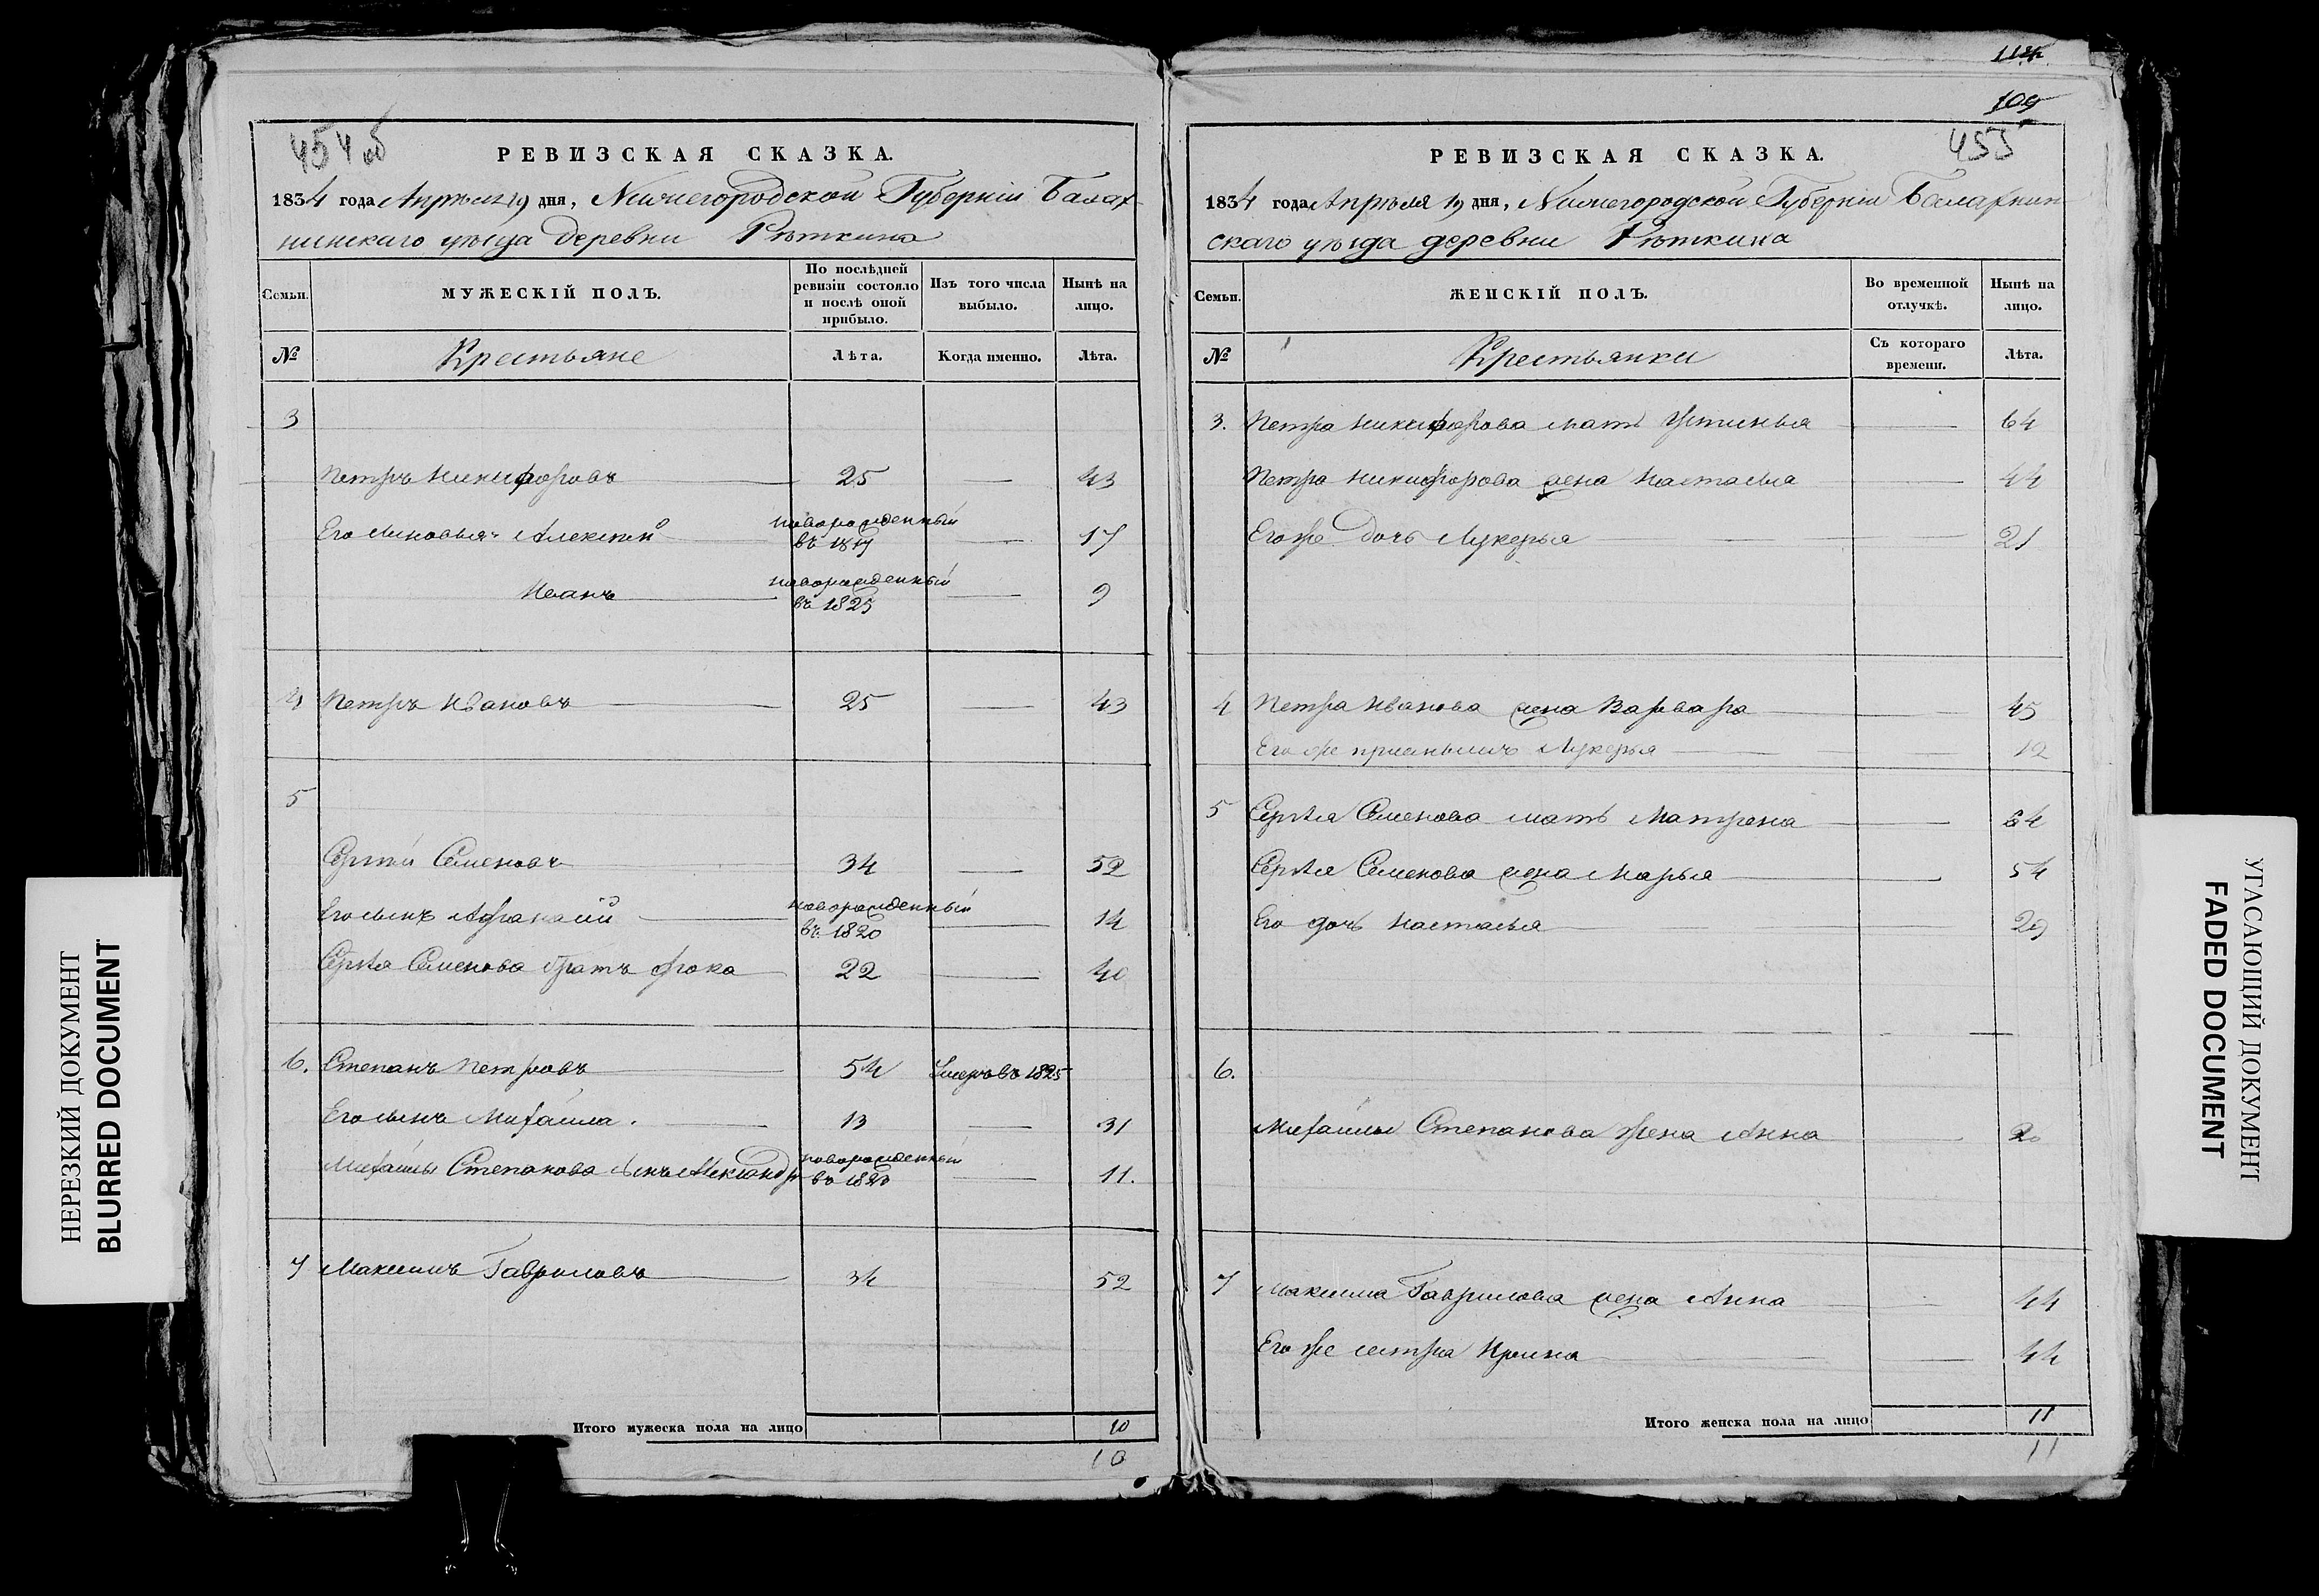 454 об
РЕВИЗСКАЯ СКАЗКА.
1834 года Апрѣля 19 дня, Нижегородской Губерніи Балах-
нинскаго уѣзда деревни Рѣткина
Семьи.
МУЖЕСКІЙ ПОЛЪ.
По послѣдней ревизіи состояло и послѣ оной прибыло.
Изъ того числа выбыло.
Нынѣ на лицо.
№ Крестьяне Лѣта. Когда именно. Лѣта.
3
Петръ Никифоровъ 25 — 43
Его сыновья Алексѣй новорожденный въ 1817 — 17
Иванъ новорожденный въ 1825 — 9
4 Петръ Ивановъ 25 — 43
5
Сергѣй Семеновъ 34 — 52
Его сынъ Афанасій новорожденный въ 1820 — 14
Сергѣя Семенова братъ Фока 22 — 40
6. Степанъ Петровъ 54 Умеръ въ 1825
Его сынъ Михайла. 13 — 31
Михайлы Степанова сынъ Александръ новорожденный въ 1823 — 11.
7 Максимъ Гавриловъ 34 52
Итого мужеска пола на лицо 10
10
114
109
455
РЕВИЗСКАЯ СКАЗКА.
1834 года Апрѣля 19 дня, Нижегородской Губерніи Балахнин-
скаго уѣзда деревни Рѣткина
Семьи.
ЖЕНСКІЙ ПОЛЪ.
Во временной отлучкѣ.
Нынѣ на лицо.
№ Крестьянки Съ котораго времени. Лѣта.
3. Петра Никифорова мать Устинья — 64
Петра Никифорова жена Настасья — 44
Его же дочь Лукерья — 21
4 Петра Иванова жена Варвара — 45
Его же пріемышъ Лукерья — 12
5 Сергѣя Семенова мать Матрена — 84
Сергѣя Семенова жена Марья — 54
Его дочь Настасья — 29
6.
Михайлы Степанова жена Анна —
7 Максима Гаврилова жена Анна — 44
Его же сестра Ирина — 44
Итого женска пола на лицо 11
11
НЕРЕЗКИЙ ДОКУМЕНТ
BLURRED DOCUMENT
УГАСАЮЩИЙ ДОКУМЕНТ
FADED DOCUMENT